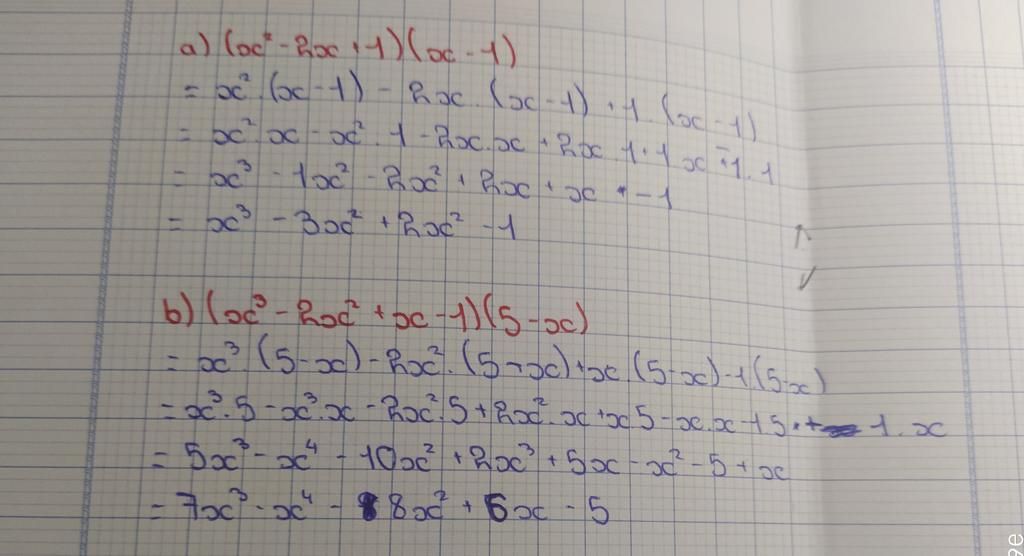 a) (x² - 2x + 1)(x - 1)
= x² (x - 1) - 2x . (x - 1) + 1 . (x - 1)
= x² x - x² . 1 - 2x.x + 2x 1 + 1 x - 1.1
= x³ - 1x² - 2x² + 2x + x - 1
= x³ - 3x² + 2x² - 1
b) (x³ - 2x² + x - 1)(5 - x)
= x³ . (5 - x) - 2x² . (5 - x) + x (5 - x) - 1(5-x)
= x³.5 - x³.x - 2x².5 + 2x².x + x 5 - x.x - 1 5 + 1.x
= 5x³ - x⁴ - 10x² + 2x³ + 5x - x² - 5 + x
= 7x³ - x⁴ - 8x² + 6x - 5